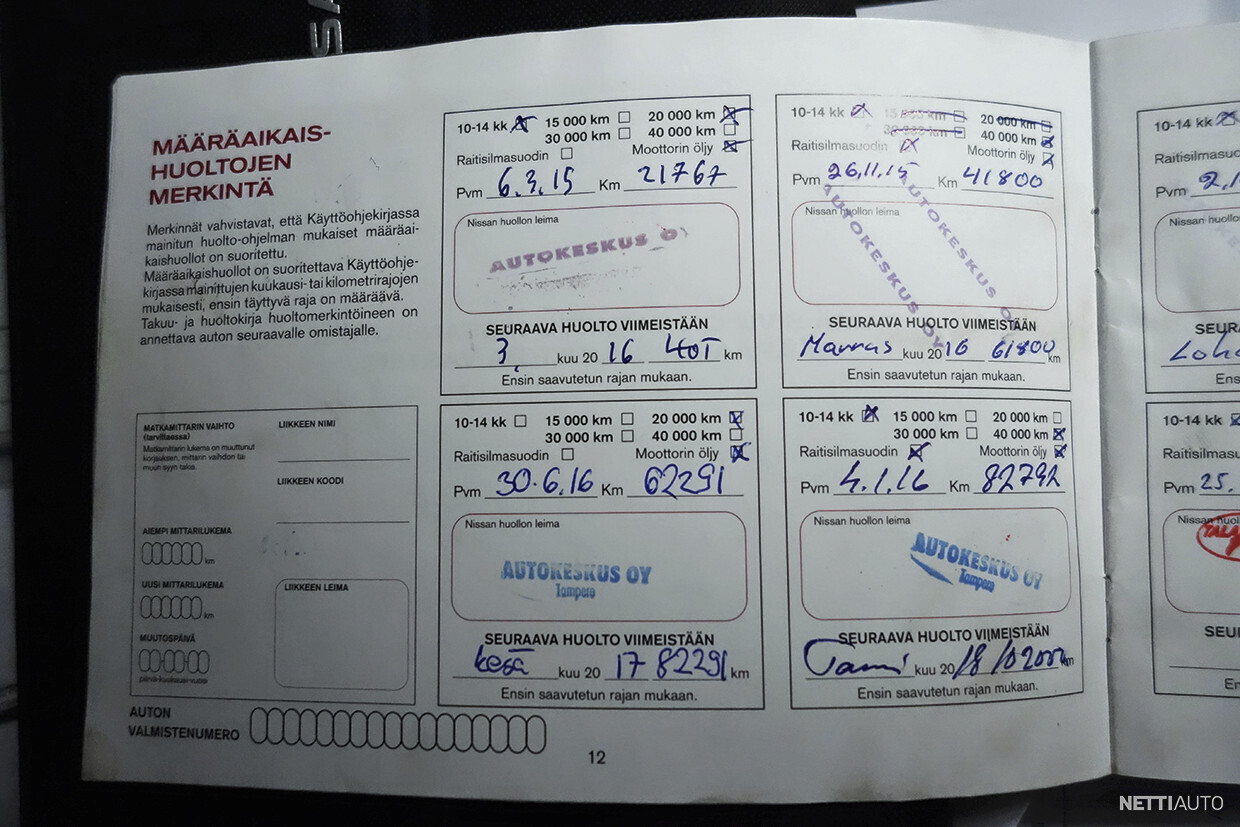 MÄÄRÄAIKAIS-
HUOLTOJEN
MERKINTÄ
Merkinnät vahvistavat, että Käyttöohjekirjassa
mainitun huolto-ohjelman mukaiset määräai-
kaishuollot on suoritettu.
Määräaikaishuollot on suoritettava Käyttöohje-
kirjassa mainittujen kuukausi- tai kilometrirajojen
mukaisesti, ensin täyttyvä raja on määräävä.
Takuu- ja huoltokirja huoltomerkintöineen on
annettava auton seuraavalle omistajalle.
10-14 kk 15 000 km 20 000 km
30 000 km 40 000 km
Raitisilmasuodin Moottorin öljy
Pvm 6.3.15 Km 21767
Nissan huollon leima
AUTOKESKUS OY
SEURAAVA HUOLTO VIIMEISTÄÄN
3 kuu 20 16 40T km
Ensin saavutetun rajan mukaan.
10-14 kk 15 000 km 20 000 km
30 000 km 40 000 km
Raitisilmasuodin Moottorin öljy
Pvm 26.11.15 Km 41800
Nissan huollon leima
AUTOKESKUS OY
AUTOKESKUS O
SEURAAVA HUOLTO VIIMEISTÄÄN
Marras kuu 20 16 61800 km
Ensin saavutetun rajan mukaan.
MATKAMITTARIN VAIHTO
(tarvittaessa)
Matkamittarin lukema on muuttunut
korjauksen, mittarin vaihdon tai
muun syyn takia.
LIIKKEEN NIMI
LIIKKEEN KOODI
AIEMPI MITTARILUKEMA
km
UUSI MITTARILUKEMA
km
MUUTOSPÄIVÄ
päivä-kuukausi-vuosi
LIIKKEEN LEIMA
10-14 kk 15 000 km 20 000 km
30 000 km 40 000 km
Raitisilmasuodin Moottorin öljy
Pvm 30.6.16 Km 62291
Nissan huollon leima
AUTOKESKUS OY
Tampere
SEURAAVA HUOLTO VIIMEISTÄÄN
kesä kuu 20 17 82291 km
Ensin saavutetun rajan mukaan.
10-14 kk 15 000 km 20 000 km
30 000 km 40 000 km
Raitisilmasuodin Moottorin öljy
Pvm 4.1.16 Km 82792
Nissan huollon leima
AUTOKESKUS OY
Tampere
SEURAAVA HUOLTO VIIMEISTÄÄN
Tammi kuu 20 18 km
Ensin saavutetun rajan mukaan.
AUTON
VALMISTENUMERO
12
10-14 kk
Pvm
10-14 kk
Pvm 25.
NETTIAUTO